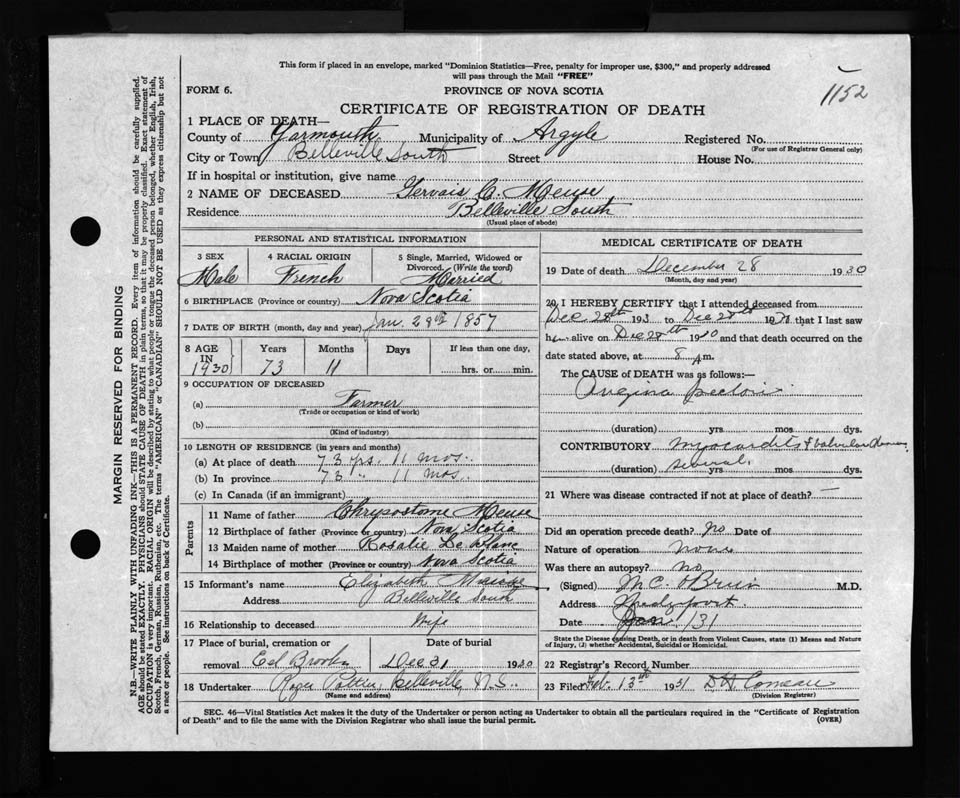 This form if placed in an envelope, marked "Dominion Statistics—Free, penalty for improper use, $300," and properly addressed
will pass through the Mail "FREE"
1152
FORM 6.
PROVINCE OF NOVA SCOTIA
CERTIFICATE OF REGISTRATION OF DEATH
1 PLACE OF DEATH—
County of Yarmouth Municipality of Argyle Registered No.
(For use of Registrar General only)
City or Town Belleville South Street House No.
If in hospital or institution, give name
2 NAME OF DECEASED Gervais C. Meuse
Residence Belleville South
(Usual place of abode)
PERSONAL AND STATISTICAL INFORMATION
3 SEX 4 RACIAL ORIGIN 5 Single, Married, Widowed or
Divorced. (Write the word)
Male French Married
6 BIRTHPLACE (Province or country) Nova Scotia
7 DATE OF BIRTH (month, day and year) Jan. 28th 1857
8 AGE IN 1930 Years 73 Months 11 Days If less than one day, hrs. or min.
9 OCCUPATION OF DECEASED
(a) Farmer
(Trade or occupation or kind of work)
(b)
(Kind of industry)
10 LENGTH OF RESIDENCE (in years and months)
(a) At place of death 73 yrs. 11 mos.
(b) In province 73 " 11 mos.
(c) In Canada (if an immigrant)
Parents
11 Name of father Chrysostome Meuse
12 Birthplace of father (Province or country) Nova Scotia
13 Maiden name of mother Rosalie Le Blanc
14 Birthplace of mother (Province or country) Nova Scotia
15 Informant's name Elizabeth
Address Belleville South
16 Relationship to deceased Wife
17 Place of burial, cremation or Date of burial
removal Eel Brook Dec 31 1930
18 Undertaker Roger Pottier, Belleville, N.S.
(Name and address)
MEDICAL CERTIFICATE OF DEATH
19 Date of death December 28 1930
(Month, day and year)
20 I HEREBY CERTIFY that I attended deceased from
Dec 28th 193 to Dec 28th 19 that I last saw
h alive on Dec 28th 1930 and that death occurred on the
date stated above, at 8 A m.
The CAUSE of DEATH was as follows:—
Angina pectoris
(duration) yrs. mos. dys.
CONTRIBUTORY Myocarditis & valvular
(duration) several yrs. mos. dys.
21 Where was disease contracted if not at place of death? —
Did an operation precede death? no Date of
Nature of operation None
Was there an autopsy? No
(Signed) M.C. O'Brien M.D.
Address
Date Jan /31
State the Disease causing Death, or in death from Violent Causes, state (1) Means and Nature
of Injury, (2) whether Accidental, Suicidal or Homicidal.
22 Registrar's Record Number
23 Filed Feb. 13th 1931 D H Comeau
(Division Registrar)
SEC. 46—Vital Statistics Act makes it the duty of the Undertaker or person acting as Undertaker to obtain all the particulars required in the "Certificate of Registration
of Death" and to file the same with the Division Registrar who shall issue the burial permit.
(OVER)
MARGIN RESERVED FOR BINDING
N.B.—WRITE PLAINLY WITH UNFADING INK—THIS IS A PERMANENT RECORD. Every item of information should be carefully supplied.
AGE should be stated EXACTLY. PHYSICIANS should STATE CAUSE OF DEATH in plain terms, so that it may be properly classified. Exact statement of
OCCUPATION is very important. RACIAL ORIGIN will be described by stating to what people or tongue the deceased person belonged, whether English, Irish,
Scotch, French, German, Russian, Ruthenian, etc. The terms "AMERICAN" or "CANADIAN" SHOULD NOT BE USED as they express citizenship but not
a race or people. See instructions on back of Certificate.